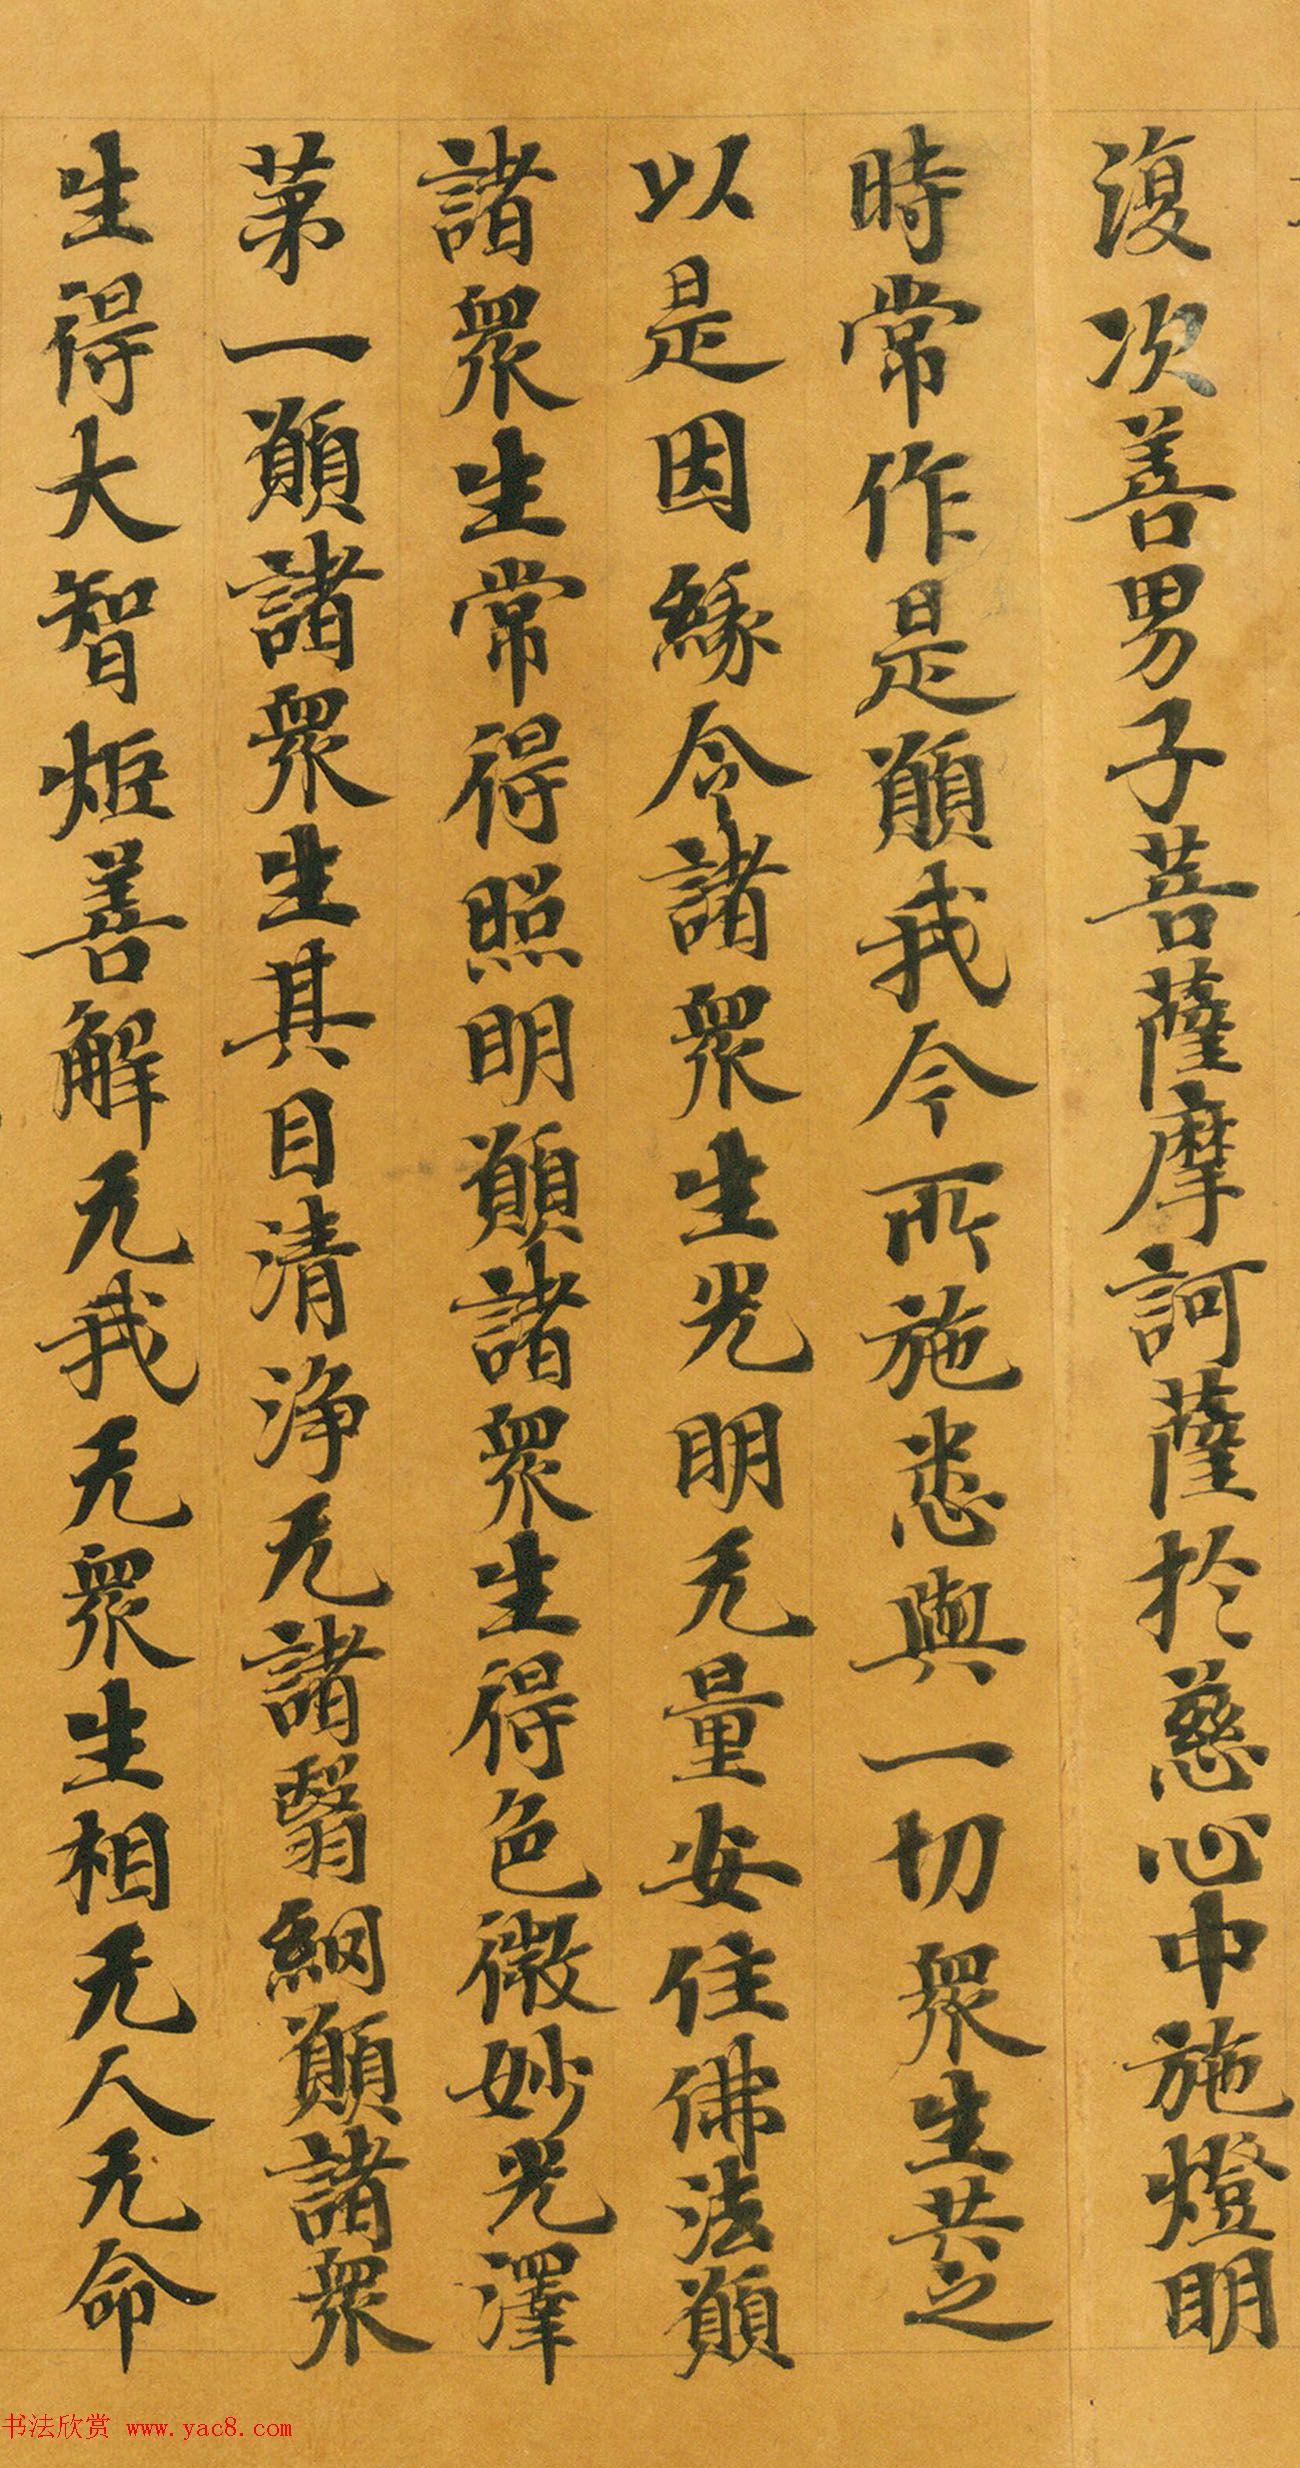 復次善男子菩薩摩訶薩於慈心中施燈明
時常作是願我今所施悉與一切衆生共之
以是因緣令諸衆生光明无量安住佛法願
諸衆生常得照明願諸衆生得色微妙光澤
第一願諸衆生其目清淨无諸翳網願諸衆
生得大智炬善解无我无衆生相无人无命
书法欣赏 www.yac8.com